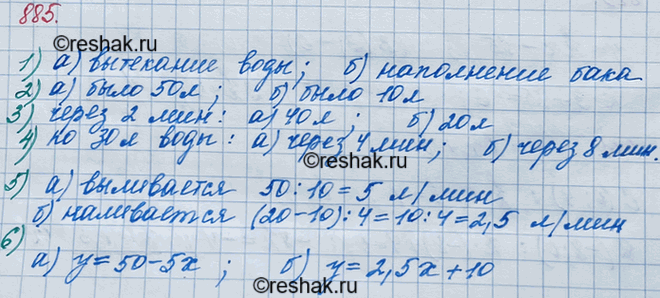 885.
©reshak.ru
1) а) вытекание воды; б) наполнение бака
2) а) было 50л; б) было 10л
3) через 2 мин: а) 40л; б) 20л
4) по 30л воды: а) через 4 мин; б) через 8 мин.
5) а) выливается 50:10=5 л/мин
б) наливается (20-10):4=10:4=2,5 л/мин
6)
а) y=50-5x; б) y=2,5x+10
©reshak.ru